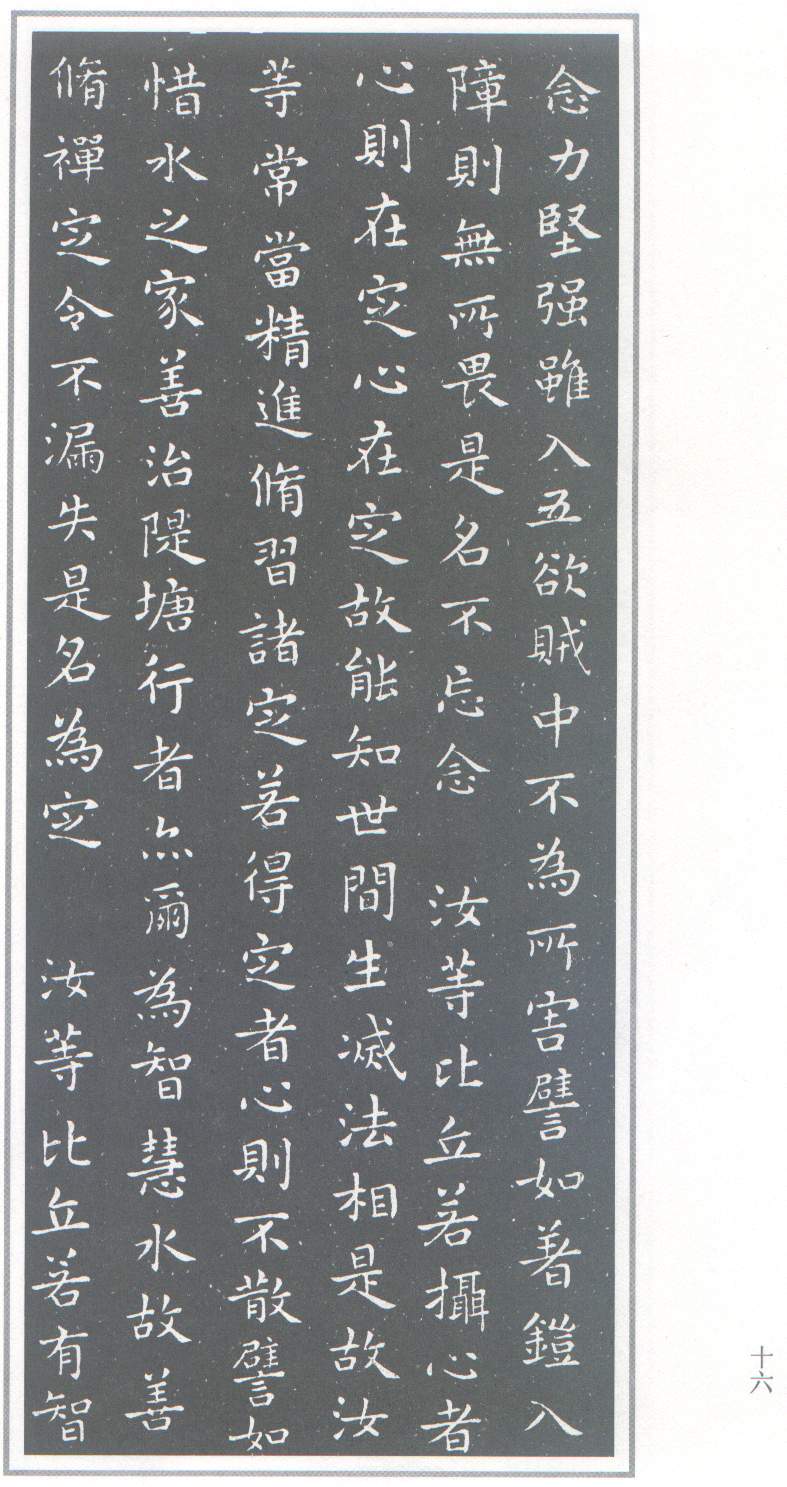 念力堅强雖入五欲賊中不為所害譬如著鎧入
障則無所畏是名不忘念　汝等比丘若攝心者
心則在定心在定故能知世間生滅法相是故汝
等常當精進脩習諸定若得定者心則不散譬如
惜水之家善治隄塘行者亦爾為智慧水故善
脩禪定令不漏失是名為定　汝等比丘若有智
十六